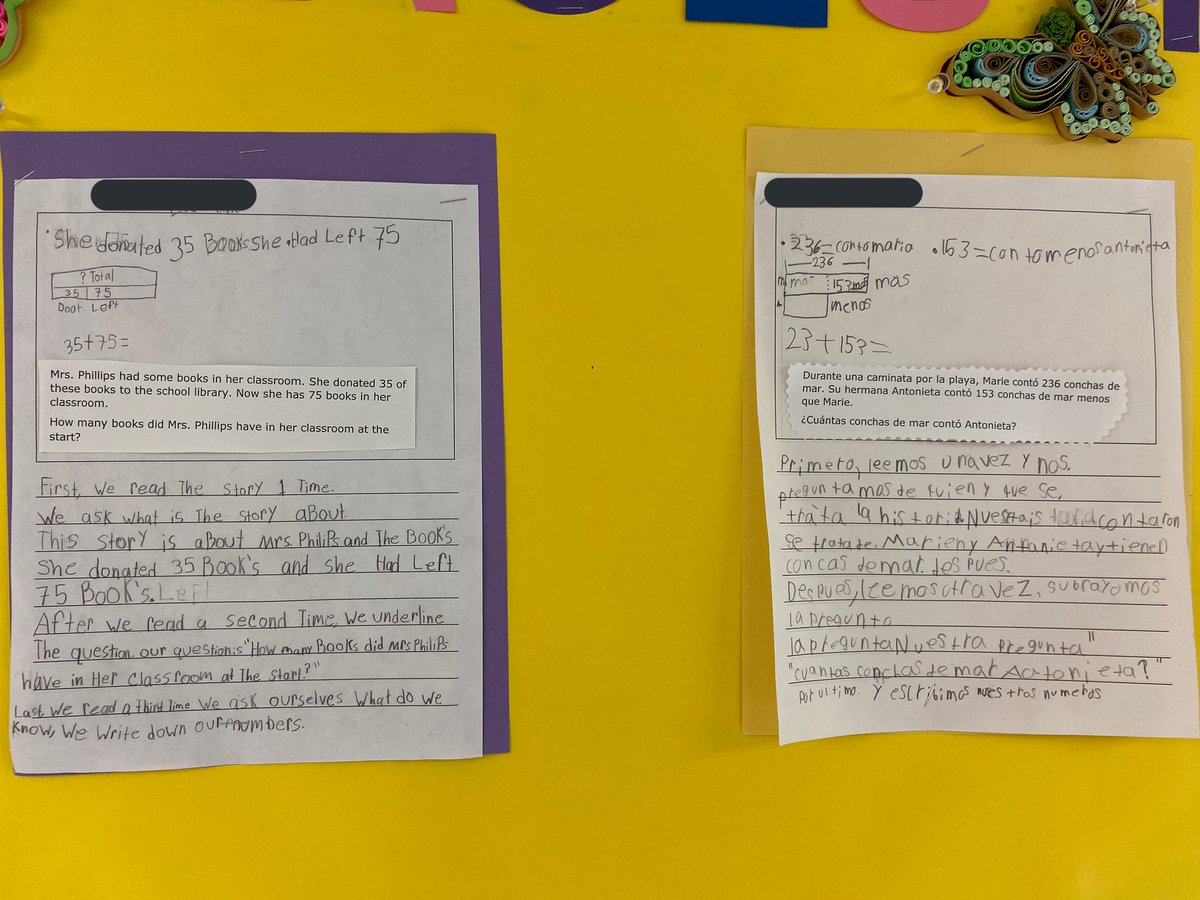 • She donated 35 Books She • Had Left 75
? Total
35 | 75
Doat Left
35+75=
Mrs. Phillips had some books in her classroom. She donated 35 of
these books to the school library. Now she has 75 books in her
classroom.
How many books did Mrs. Phillips have in her classroom at the
start?
First, We read The Story 1 Time.
We ask what is The story aBout
This story is aBout Mrs. PhiliPs and The Book's
She donated 35 Book's and she Had Left
75 Book's. Left
AFter we read a second Time, We underline
The question. our question is "How many Books did Mrs Philips
have in Her Classroom at The start?"
Last, We read a third Time We ask ourselves What do we
Know, We Write down our numbers.
• 236=conto maria • 153=conto menos antonieta
236
mas 153 mas
menos
23+153=
Durante una caminata por la playa, Marie contó 236 conchas de
mar. Su hermana Antonieta contó 153 conchas de mar menos
que Marie.
¿Cuántas conchas de mar contó Antonieta?
Primero, leemos una vez Y nos,
preguntamos de quien y que se,
trata la historia Nuestra contaron
se trata de. Marien y Antonieta y tienen
concas de mar. des pues.
Des pues, leemos otra vez. subrayamos
la pregunta
la pregunta Nuestra pregunta"
"cuantas conchas de mar Antonieta?"
Por ultimo. Y escribimos nues tros numeros